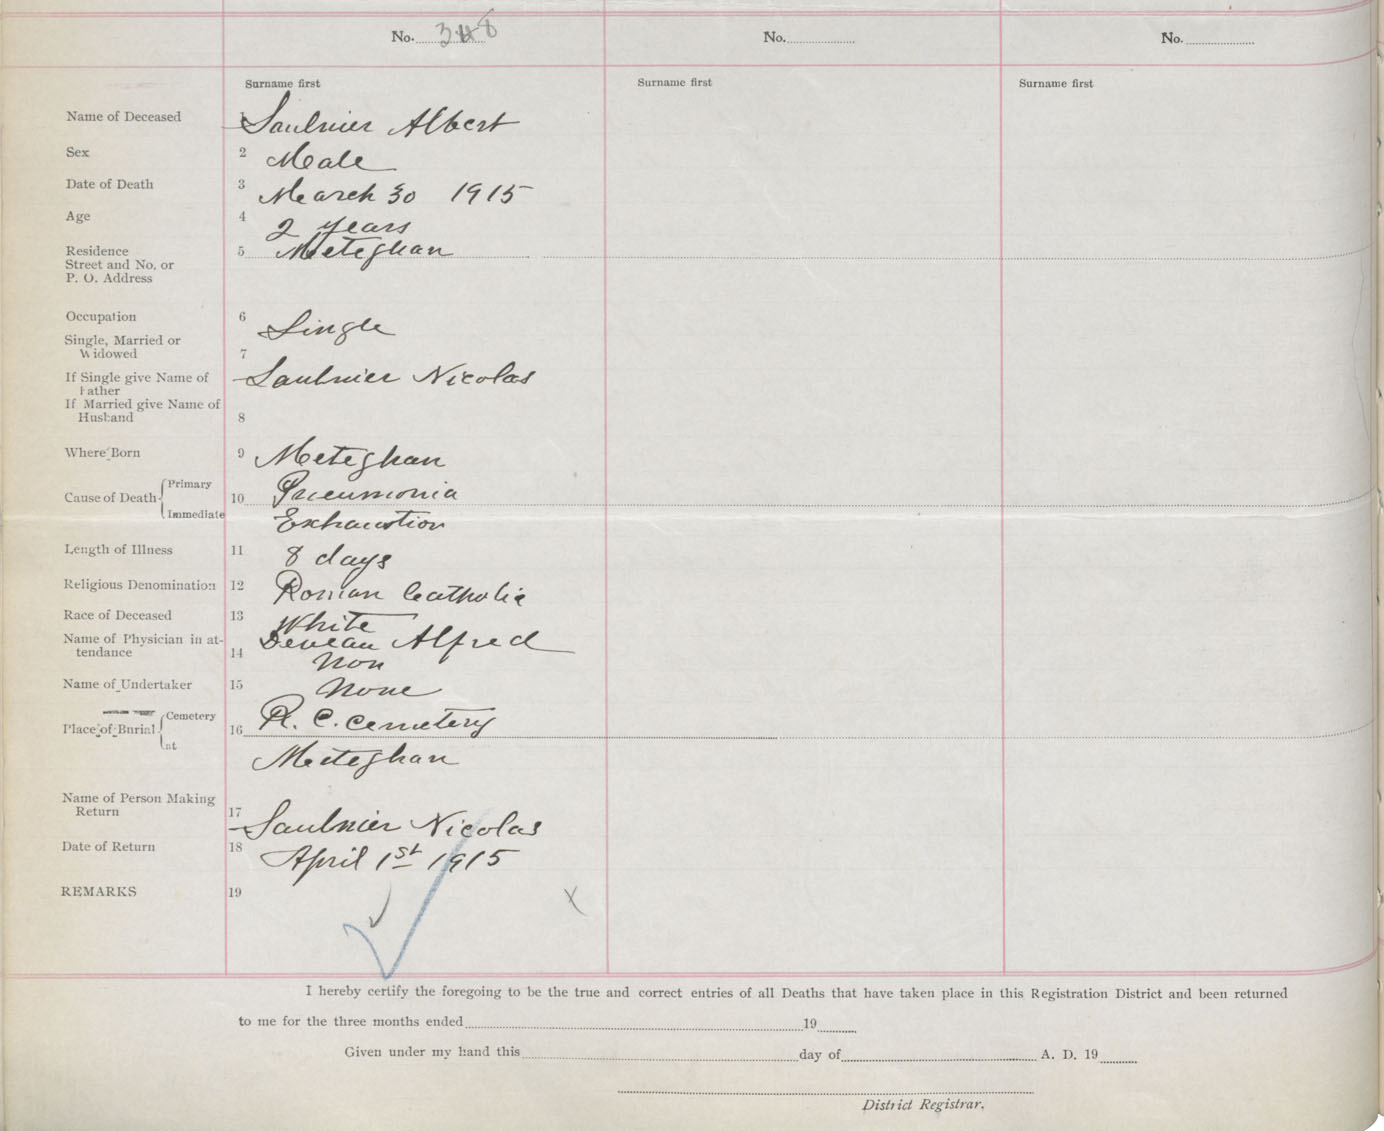 No. 348
No.
No.
Surname first
Surname first
Surname first
Name of Deceased 1 Saulnier Albert
Sex 2 Male
Date of Death 3 March 30 1915
Age 4 2 years
Residence 5 Meteghan
Street and No. or
P. O. Address
Occupation 6 Single
Single, Married or
Widowed 7
If Single give Name of Saulnier Nicolas
Father
If Married give Name of
Husband 8
Where Born 9 Meteghan
Primary
Cause of Death 10 Pneumonia
Immediate Exhaustion
Length of Illness 11 8 days
Religious Denomination 12 Roman Catholic
Race of Deceased 13 White
Name of Physician in at- Deveau Alfred
tendance 14 Non
Name of Undertaker 15 None
Cemetery
Place of Burial 16 R. C. Cemetery
at Meteghan
Name of Person Making
Return 17 Saulnier Nicolas
Date of Return 18 April 1st 1915
REMARKS 19
I hereby certify the foregoing to be the true and correct entries of all Deaths that have taken place in this Registration District and been returned
to me for the three months ended 19
Given under my hand this day of A. D. 19
District Registrar.